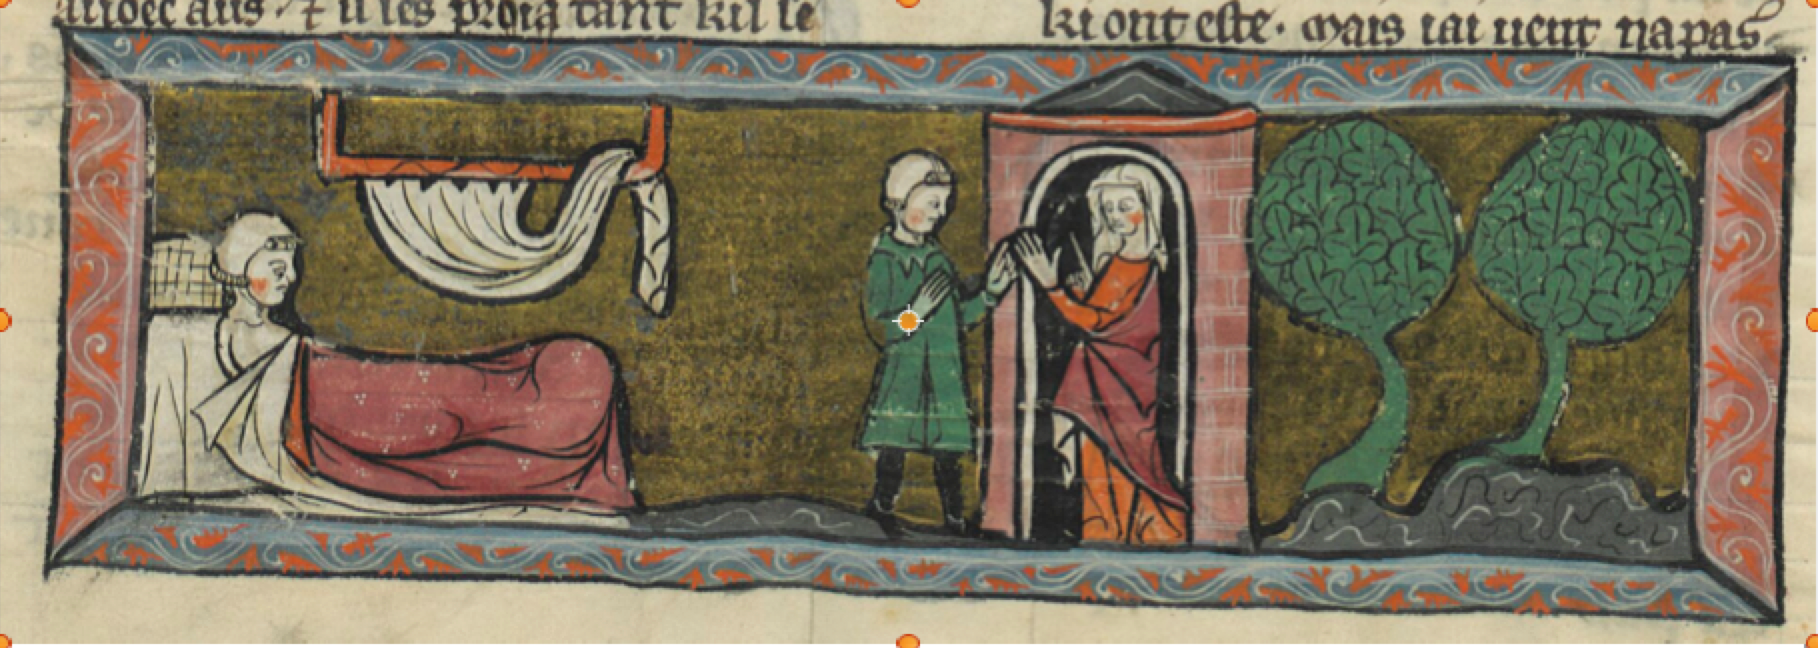 auoec aus. ⁊ il les proia tant kil le
ki ont este. mais iai uent na pas